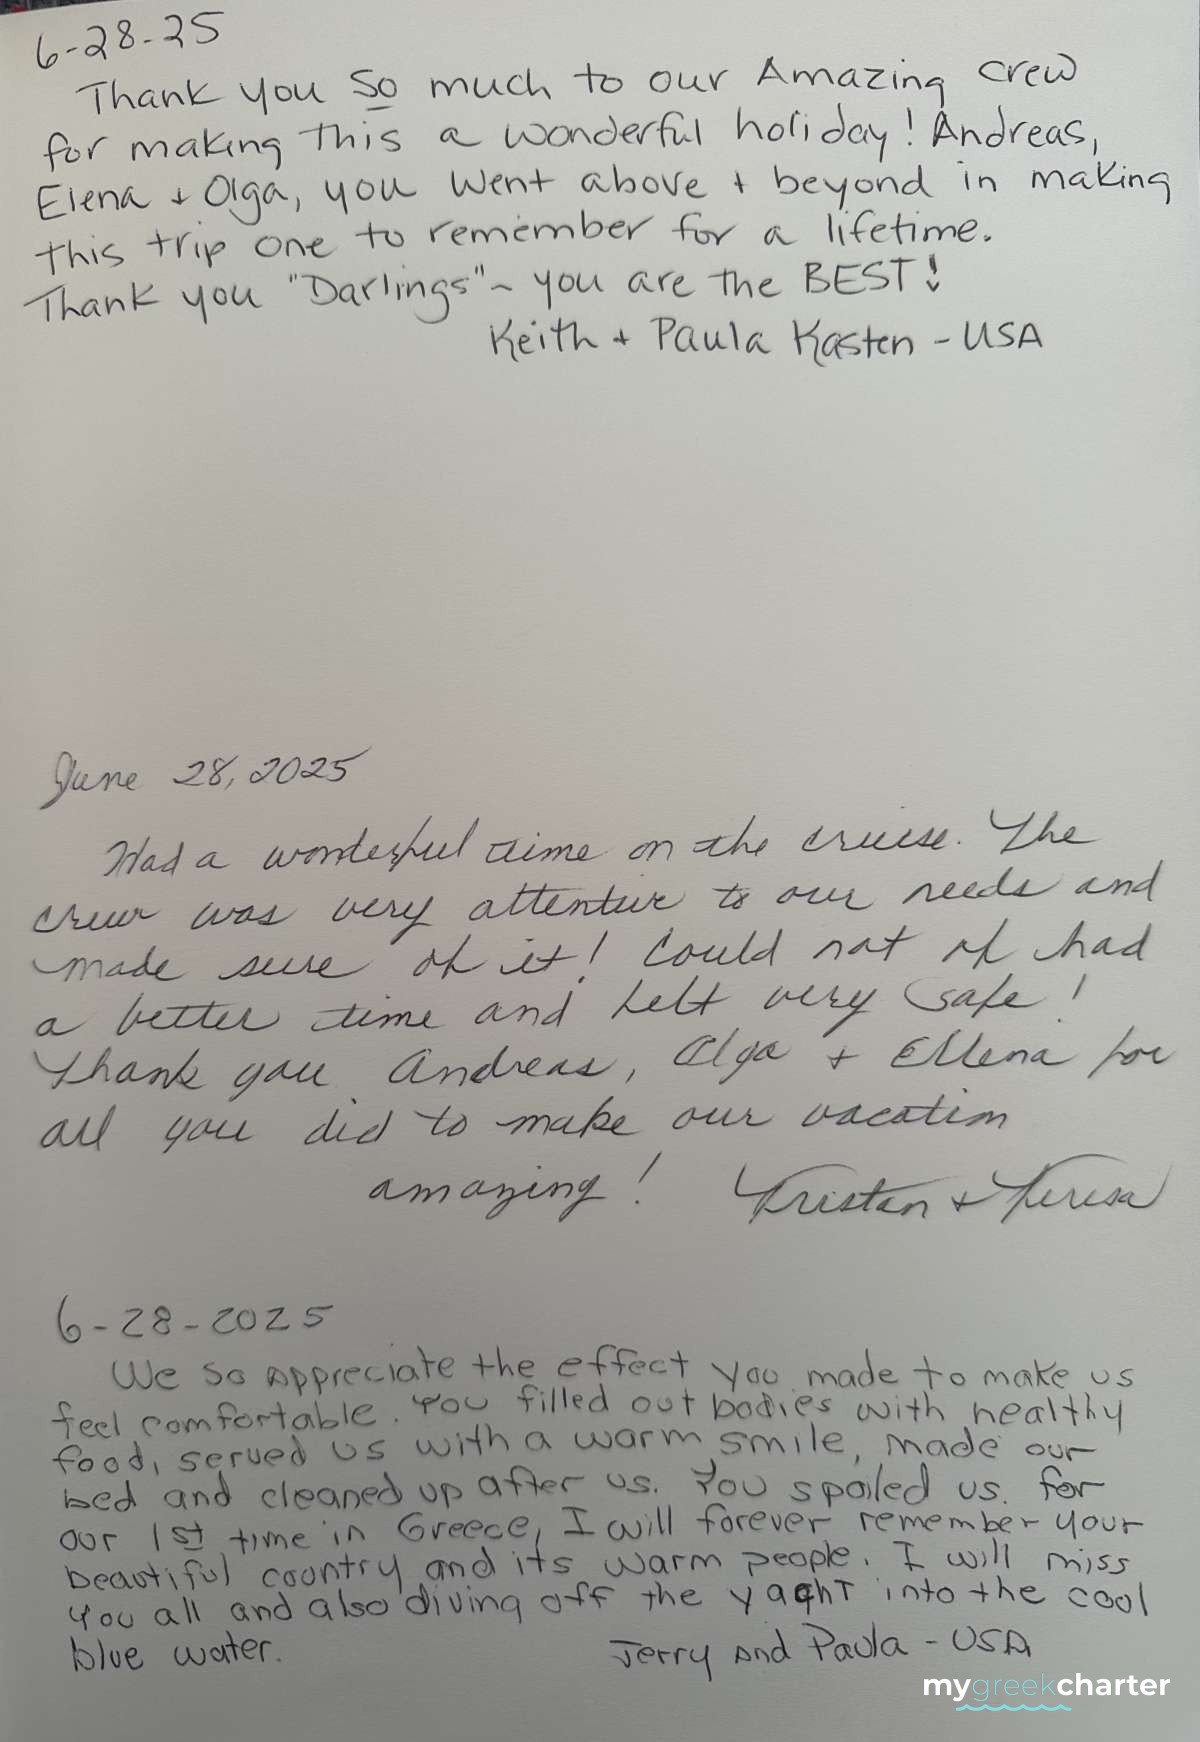 6-28-25
Thank you so much to our Amazing crew
for making this a wonderful holiday! Andreas,
Elena + Olga, you went above + beyond in making
this trip one to remember for a lifetime.
Thank you "Darlings" ~ you are the BEST!
Keith + Paula Kasten - USA
June 28, 2025
Had a wonderful time on the cruise. The
crew was very attentive to our needs and
made sure of it! Could not of had
a better time and felt very safe!
Thank you Andreas, Olga + Ellena for
all you did to make our vacation
amazing! Tristan + Teresa
6-28-2025
We so appreciate the effect you made to make us
feel comfortable. You filled out bodies with healthy
food, served us with a warm smile, made our
bed and cleaned up after us. You spoiled us. For
our 1st time in Greece, I will forever remember your
beautiful country and its warm people. I will miss
you all and also diving off the yacht into the cool
blue water. Jerry and Paula - USA
mygreekcharter